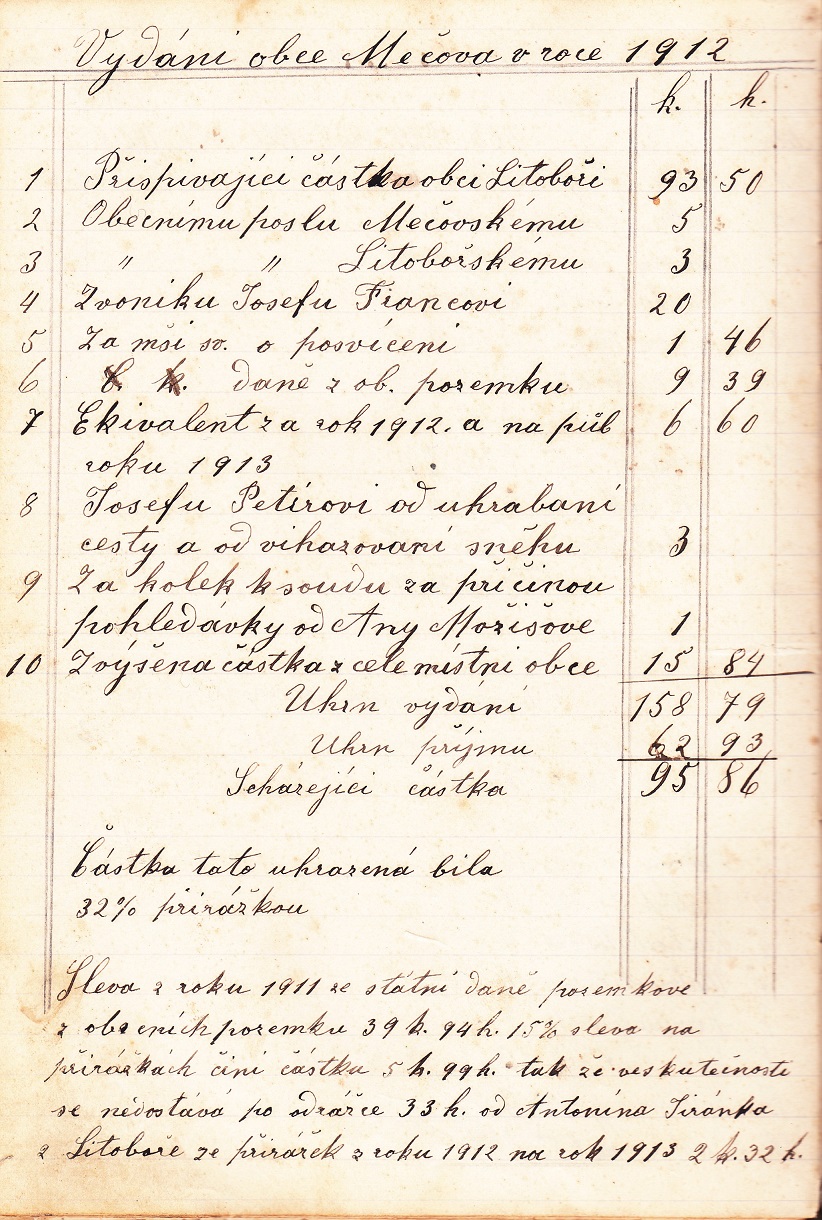 Vydání obce Mečova v roce 1912
k. h.
1 Přispivající částka obci Litoboři 93 50
2 Obecnímu poslu Mečovskému 5
3 " " Litobořskému 3
4 Zvoniku Josefu Francovi 20
5 Za mši sv. o posvícení 1 46
6 C. k. daně z ob. pozemku 9 39
7 Ekivalent za rok 1912. a na půl 6 60
roku 1913
8 Josefu Petírovi od uhrabaní
cesty a od vihazovaní sněhu 3
9 Za kolek k soudu za přičinou
pohledávky od Any Možišove 1
10 Zvýšena částka z cele místni obce 15 84
Uhrn vydání 158 79
Uhrn příjmu 62 93
Scházejíci částka 95 86
Částka tato uhrazená bila
32% přirážkou
Sleva z roku 1911 ze státní daně pozemkove
z obecních pozemku 39 k. 94 h. 15% sleva na
přirážkách činí částku 5 k. 99 h. tak že veskutečnosti
se nedostává po odrážce 33 h. od Antonína Jiránka
z Litoboře ze přirážek z roku 1912 na rok 1913 2 k. 32 h.